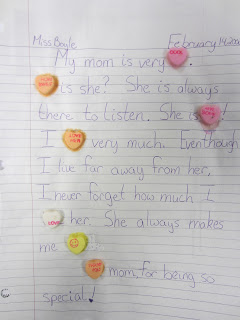 Miss Boyle February 14, 200
My mom is very
is she? She is always
there to listen. She is !
I very much. Eventhough
I live far away from her,
I never forget how much I
LOVE her. She always makes
me
mom, for being so
special!